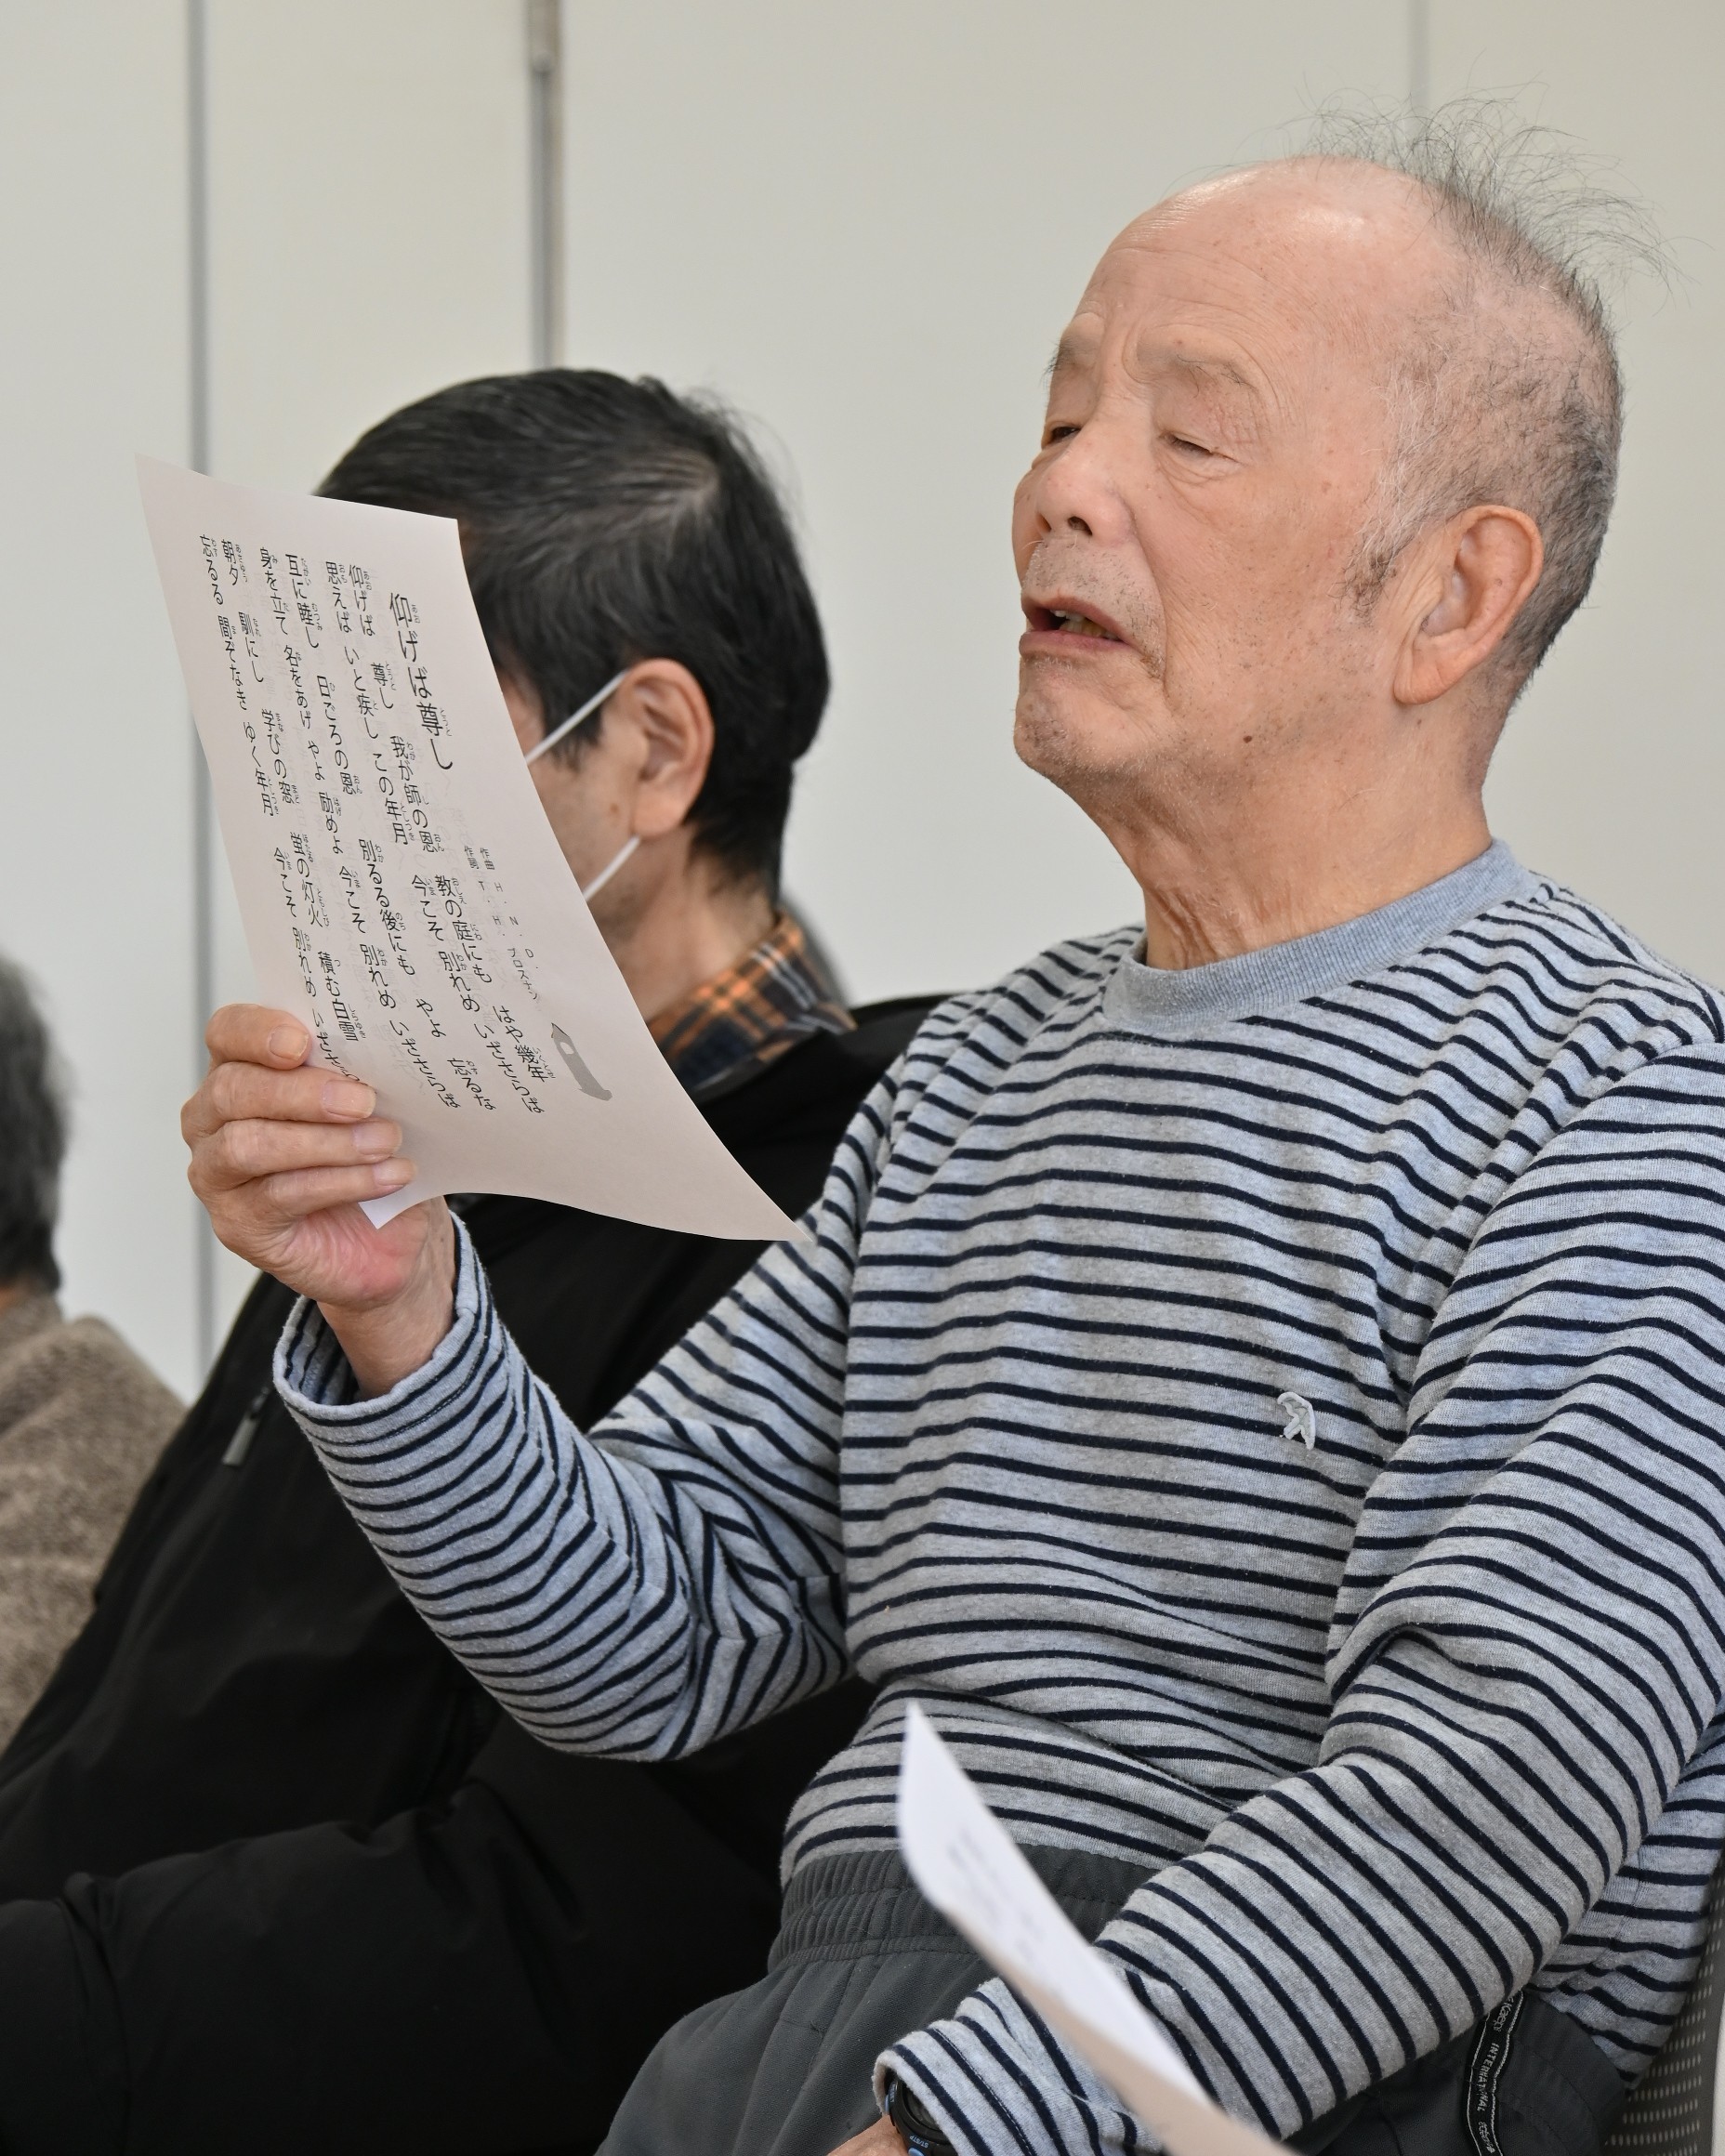 仰げば尊し
作曲 H. N. D.
作詞 T. H. ブロスナン
仰げば 尊し 我が師の恩 教の庭にも はや幾年
思えば いと疾し この年月 今こそ 別れめ いざさらば
互に睦し 日ごろの恩 別るる後にも やよ 忘るな
身を立て 名をあげ やよ 励めよ 今こそ 別れめ いざさらば
朝夕 馴にし 学びの窓 蛍の灯火 積む白雪
忘るる 間ぞなき ゆく年月 今こそ 別れめ いざさら
INTERNATIONAL